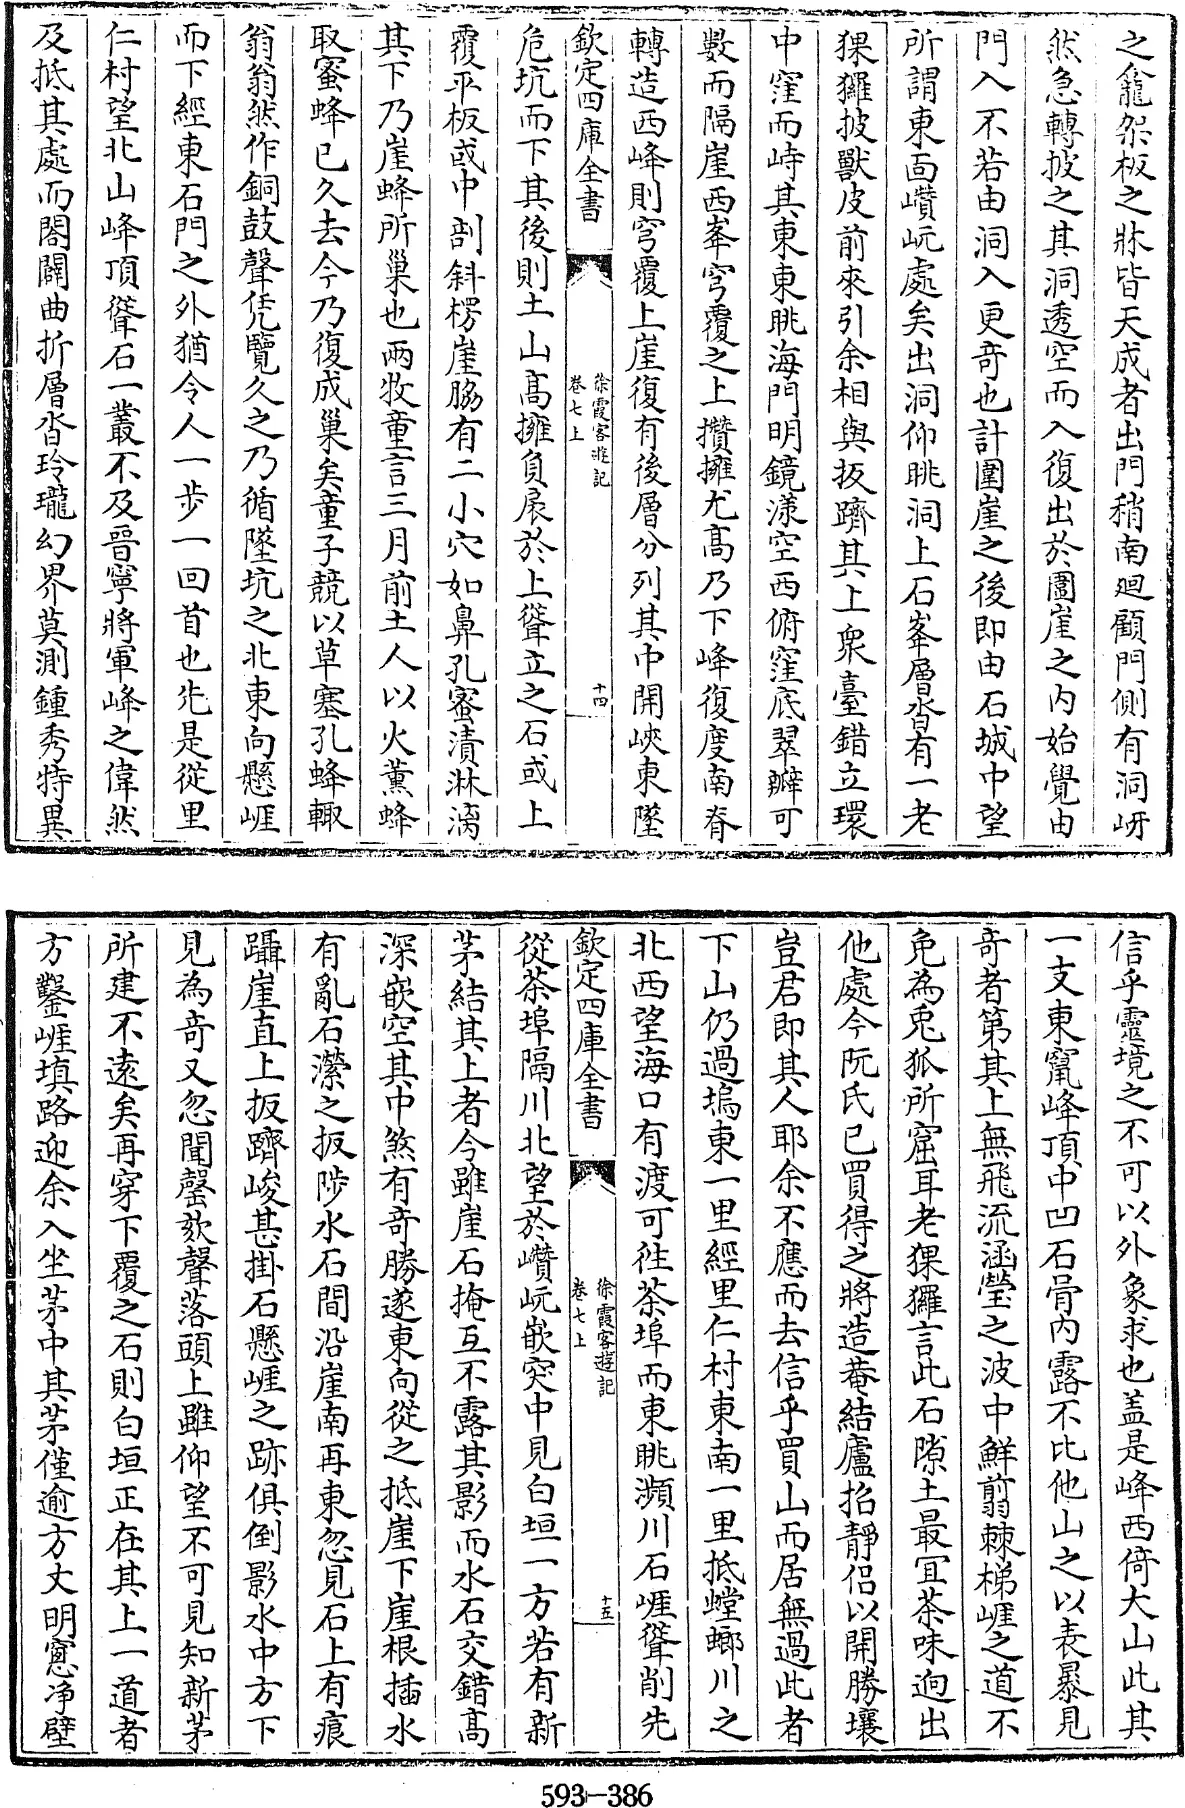 之龕架板之牀皆天成者出門稍南迴顧門側有洞岈
然急轉披之其洞透空而入復出於圍崖之内始覺由
門入不若由洞入更奇也計圍崖之後即由石城中望
所謂東面巑岏處矣出洞仰眺洞上石峯層沓有一老
猓玀披獸皮前來引余相與扳躋其上衆臺錯立環
中窪而峙其東東眺海門明鏡漾空西俯窪底翠瓣可
數而隔崖西峯穹覆之上攢擁尤高乃下峰復度南脊
轉造西峰則穹覆上崖復有後層分列其中開峽東墜
欽定四庫全書
徐霞客遊記
卷七上
十四
危坑而下其後則土山高擁負扆於上聳立之石或上
覆平板或中剖斜楞崖脇有二小穴如鼻孔蜜漬淋漓
其下乃崖蜂所巢也兩牧童言三月前土人以火薫蜂
取蜜蜂已久去今乃復成巢矣童子競以草塞孔蜂輙
翁翁然作銅鼓聲凭覽久之乃循墜坑之北東向懸崕
而下經東石門之外猶令人一步一回首也先是從里
仁村望北山峰頂聳石一叢不及晉寧將軍峰之偉然
及抵其處而閤闢曲折層沓玲瓏幻界莫測鍾秀特異
信乎靈境之不可以外象求也蓋是峰西倚大山此其
一支東竄峰頂中凹石骨内露不比他山之以表暴見
奇者第其上無飛流涵瑩之波中鮮翦棘梯崕之道不
免為兎狐所窟耳老猓玀言此石隙土最宜茶味迥出
他處今阮氏已買得之將造菴結廬招靜侣以開勝壤
豈君即其人耶余不應而去信乎買山而居無過此者
下山仍過塢東一里經里仁村東南一里抵螳螂川之
北西望海口有渡可往茶埠而東眺瀕川石崕聳削先
欽定四庫全書
徐霞客遊記
卷七上
十五
從茶埠隔川北望於巑岏嵌突中見白垣一方若有新
茅結其上者今雖崖石掩互不露其影而水石交錯高
深嵌空其中煞有奇勝遂東向從之抵崖下崖根插水
有亂石瀠之扳陟水石間沿崖南再東忽見石上有痕
躡崖直上扳躋峻甚掛石懸崕之跡俱倒影水中方下
見為奇又忽聞謦欬聲落頭上雖仰望不可見知新茅
所建不遠矣再穿下覆之石則白垣正在其上一道者
方鑿崕填路迎余入坐茅中其茅僅逾方丈明窻净壁
593—386